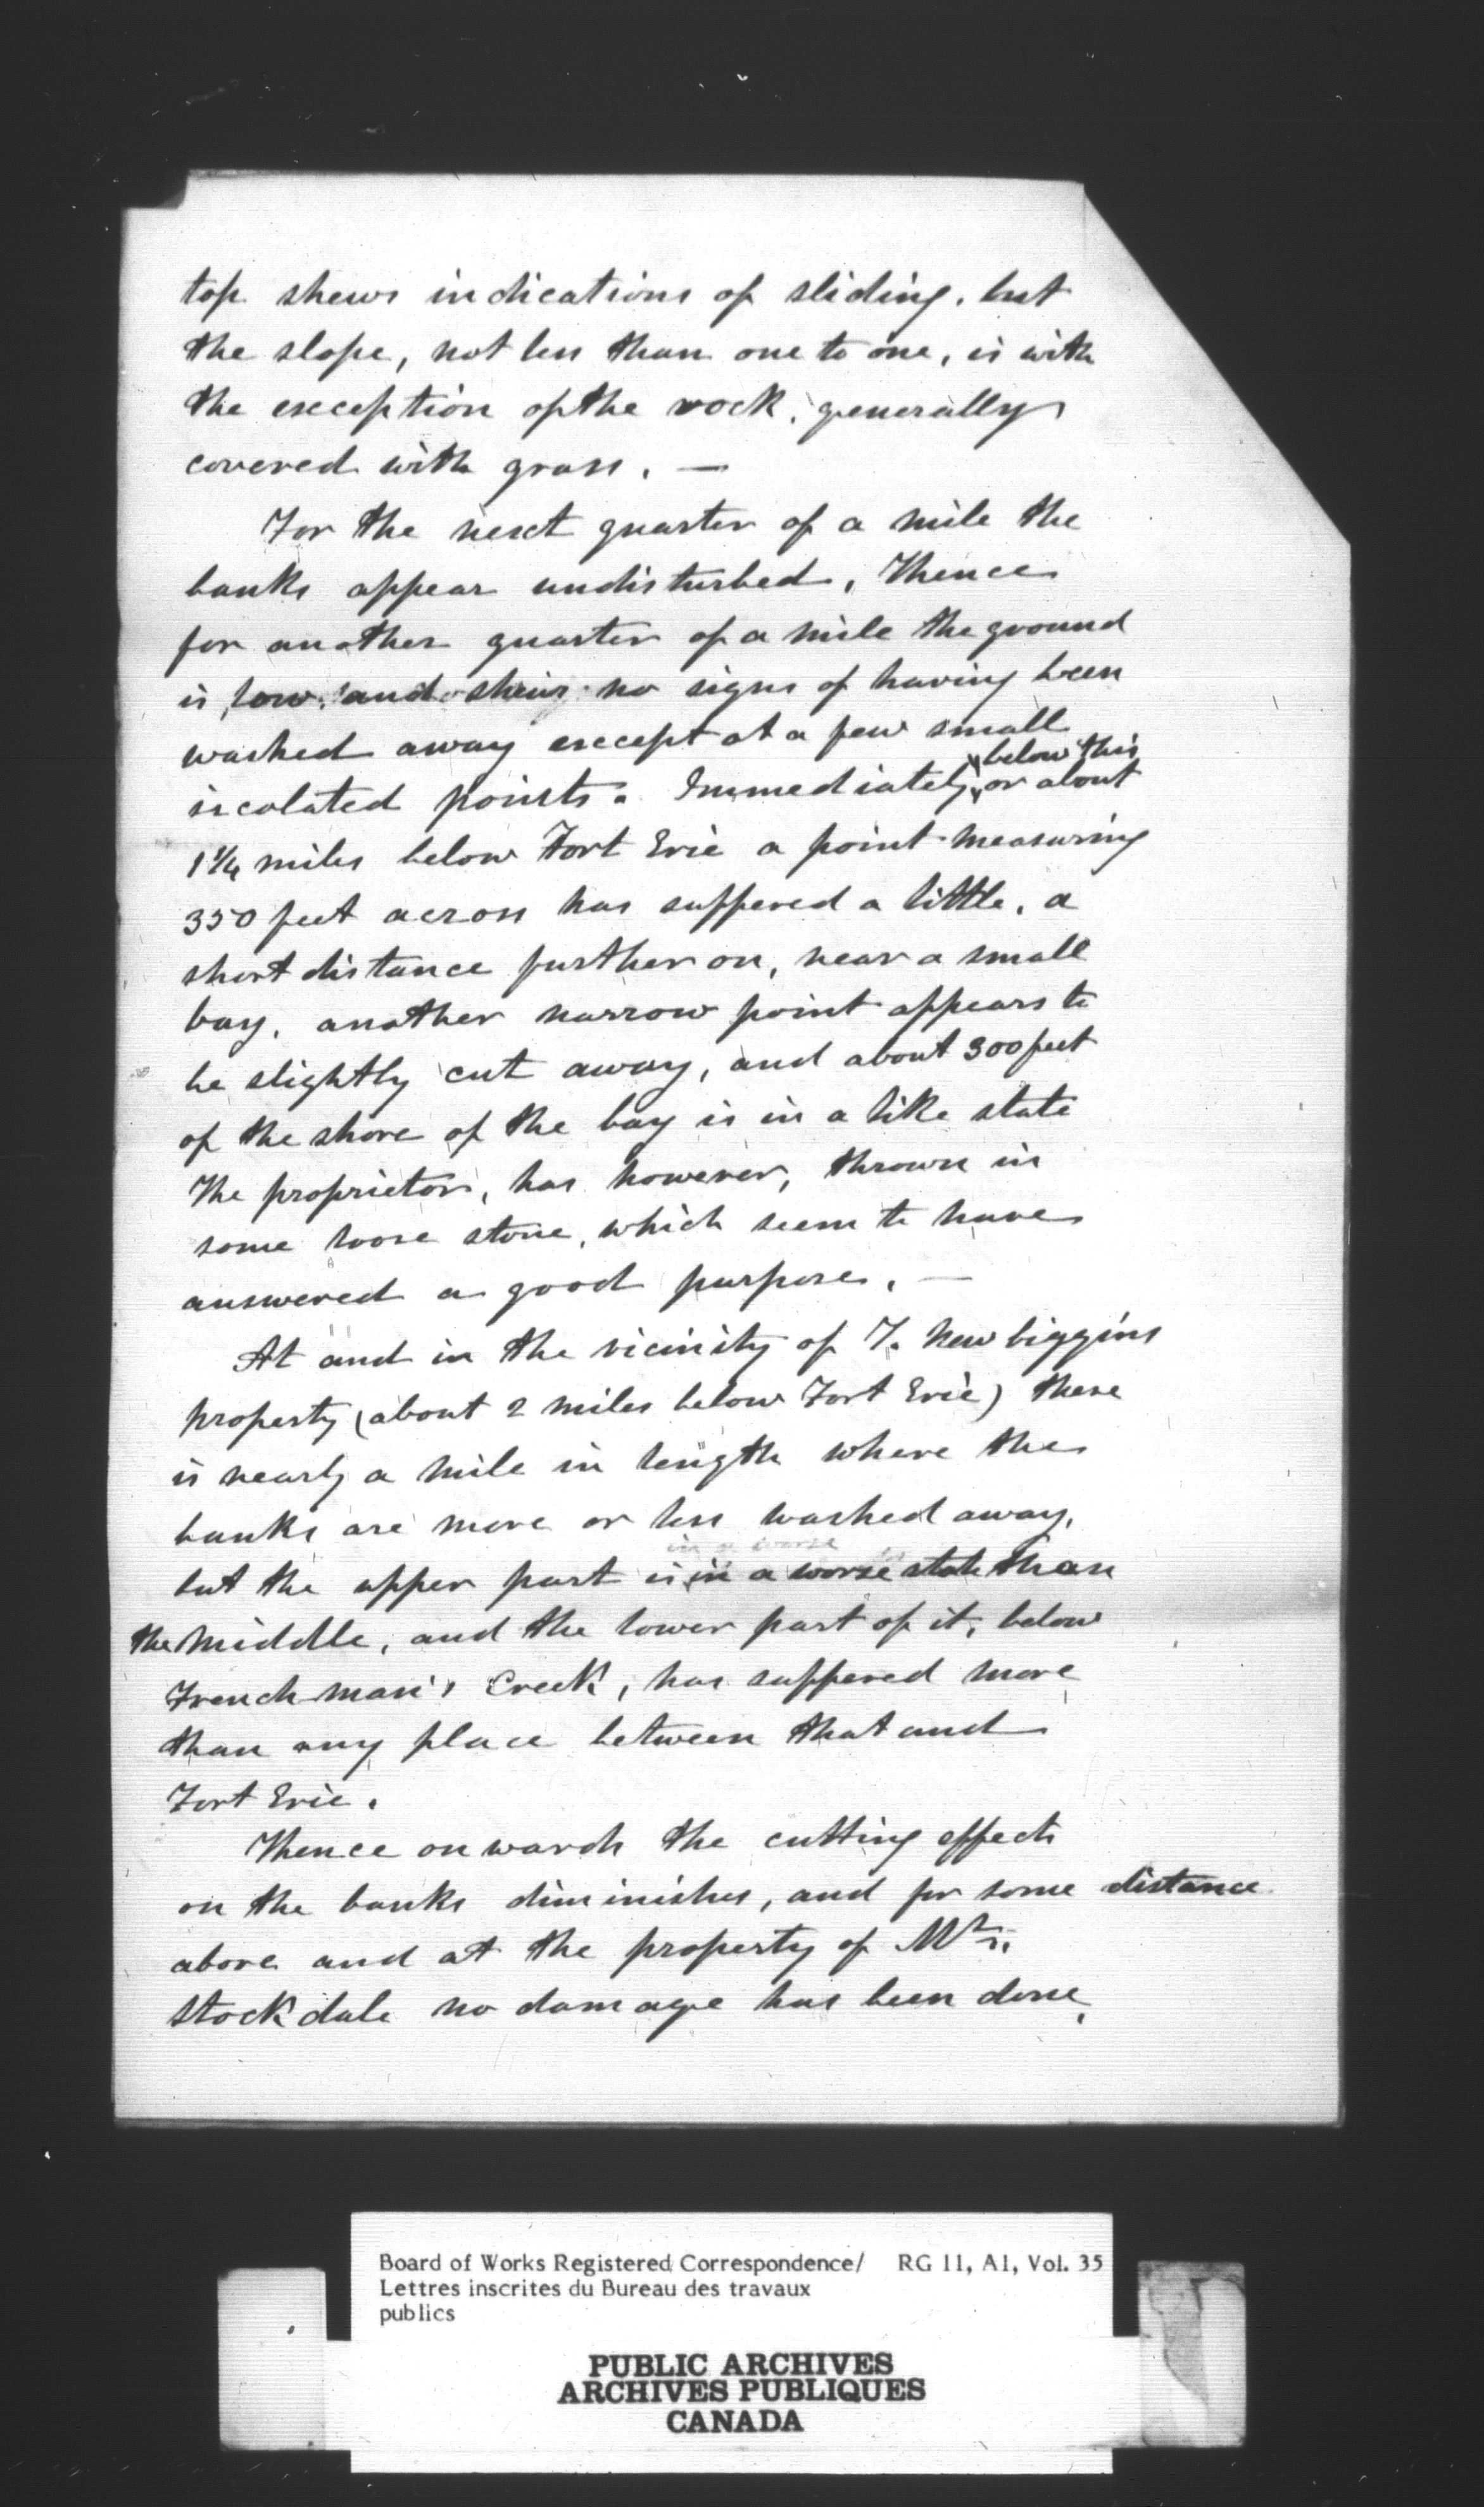 top shews indications of sliding, but
the slope, not less than one to one, is with
the exception of the rock, generally
covered with grass. —
For the next quarter of a mile the
banks appear undisturbed, Thence
for another quarter of a mile the ground
is low, and shews no signs of having been
washed away except at a few small
isolated points. Immediately below this or about
1 1/4 miles below Fort Erie a point measuring
350 feet across has suffered a little, a
short distance further on, near a small
bay, another narrow point appears to
be slightly cut away, and about 300 feet
of the shore of the bay is in a like state
The proprietor, has however, thrown in
some loose stone, which seem to have
answered a good purpose. —
At and in the vicinity of T. Newbiggins
property (about 2 miles below Fort Erie) there
is nearly a mile in length where the
banks are more or less washed away,
but the upper part is in a worse state than
the middle, and the lower part of it, below
Frenchman's Creek, has suffered more
than any place between that and
Fort Erie.
Thence onwards the cutting effects
on the banks diminishes, and for some distance
above and at the property of Mrs.
Stockdale no damage has been done,
Board of Works Registered Correspondence/ RG 11, A1, Vol. 35
Lettres inscrites du Bureau des travaux
publics
PUBLIC ARCHIVES
ARCHIVES PUBLIQUES
CANADA